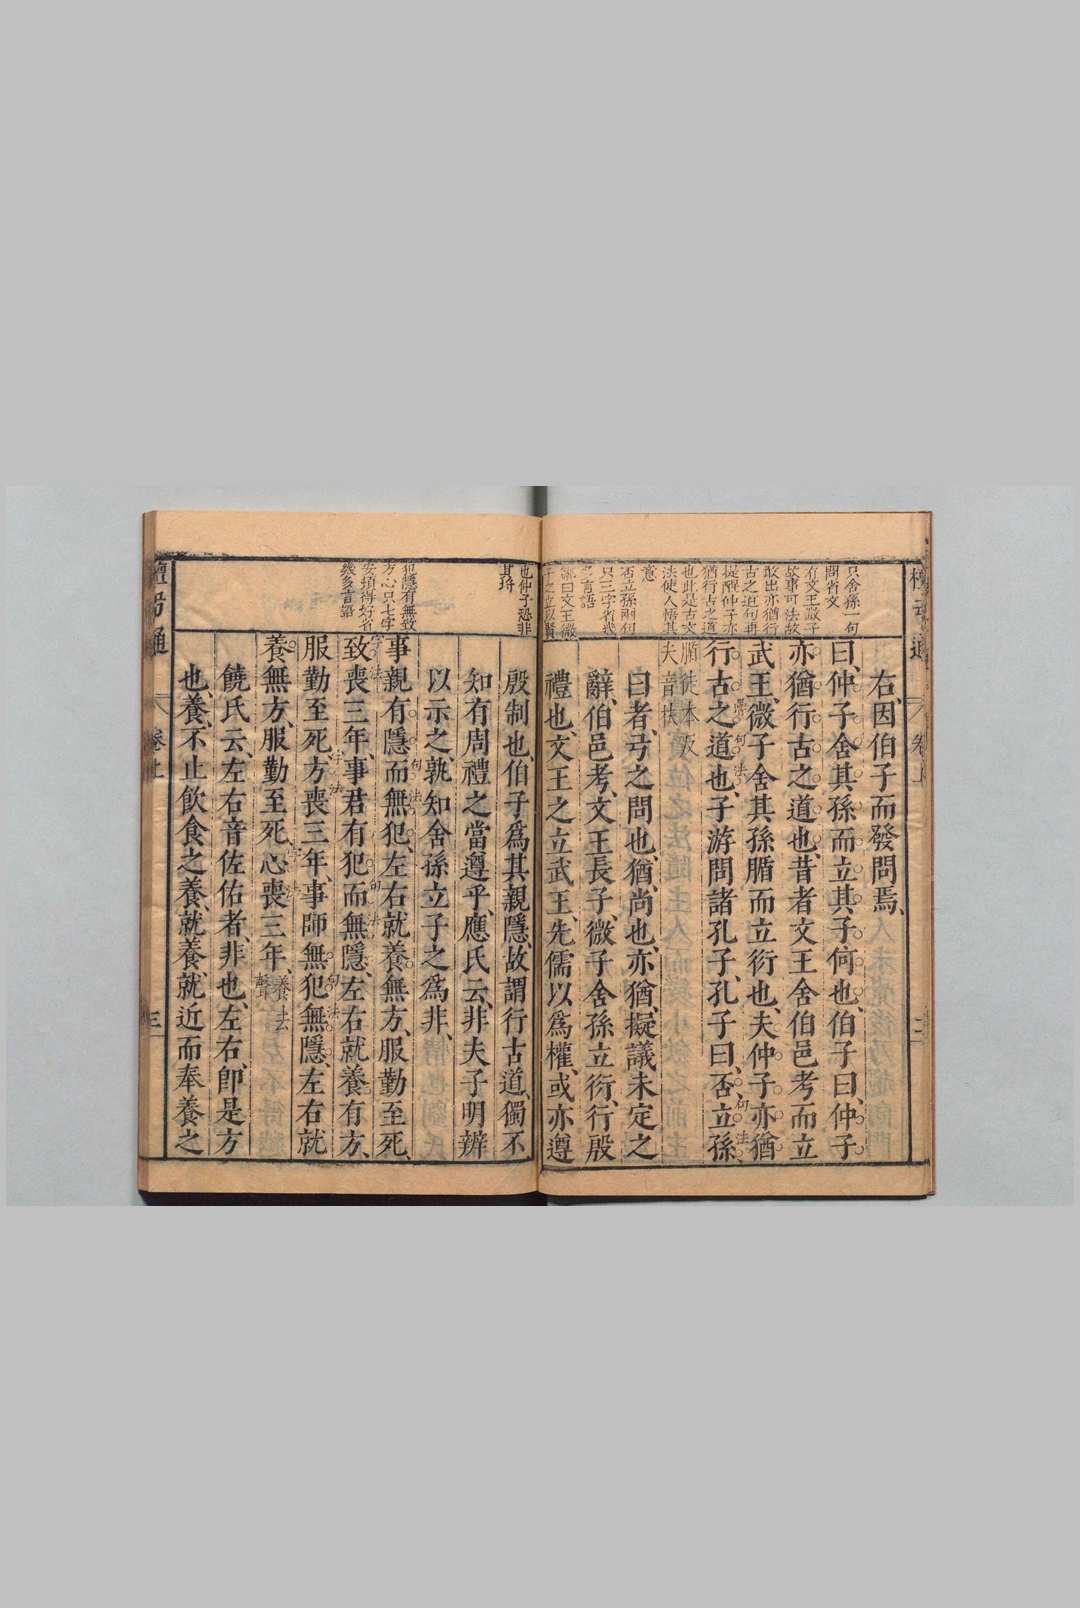 只舍孫一句
問省文
有文王微子
故事可法故
敢出亦猶行
古之道句再
提醒仲子亦
猶行古之道
也此是古文
法使人悟其
意
否立孫兩句
只三字省幾
多言語
右、因伯子而發問焉、
曰、仲子舍其孫而立其子何也、伯子曰、仲子
亦猶行古之道也、昔者文王舍伯邑考而立
武王、微子舍其孫腯而立衍也、夫仲子亦猶
行古之道也、子游問諸孔子、孔子曰、否、立孫、
腯徒本反
夫音扶
曰者、弓之問也、猶、尚也、亦猶、擬議未定之
辭、伯邑考、文王長子、微子舍孫立衍、行殷
禮也、文王之立武王、先儒以爲權、或亦遵
也仲子恐非
其將
犯隱有無致
方心只七字
安頓得好省
幾多言語
殷制也、伯子爲其親隱、故謂行古道、獨不
知有周禮之當遵乎、應氏云、非夫子明辨
以示之、孰知舍孫立子之爲非、
事親有隱而無犯、左右就養無方、服勤至死、
致喪三年、事君有犯而無隱、左右就養有方、
服勤至死、方喪三年、事師無犯無隱、左右就
養無方、服勤至死、心喪三年、養去聲
饒氏云、左右音佐佑者、非也、左右、卽是方
也、養、不止飲食之養、就養、就近而奉養之
檀弓通
卷上
三